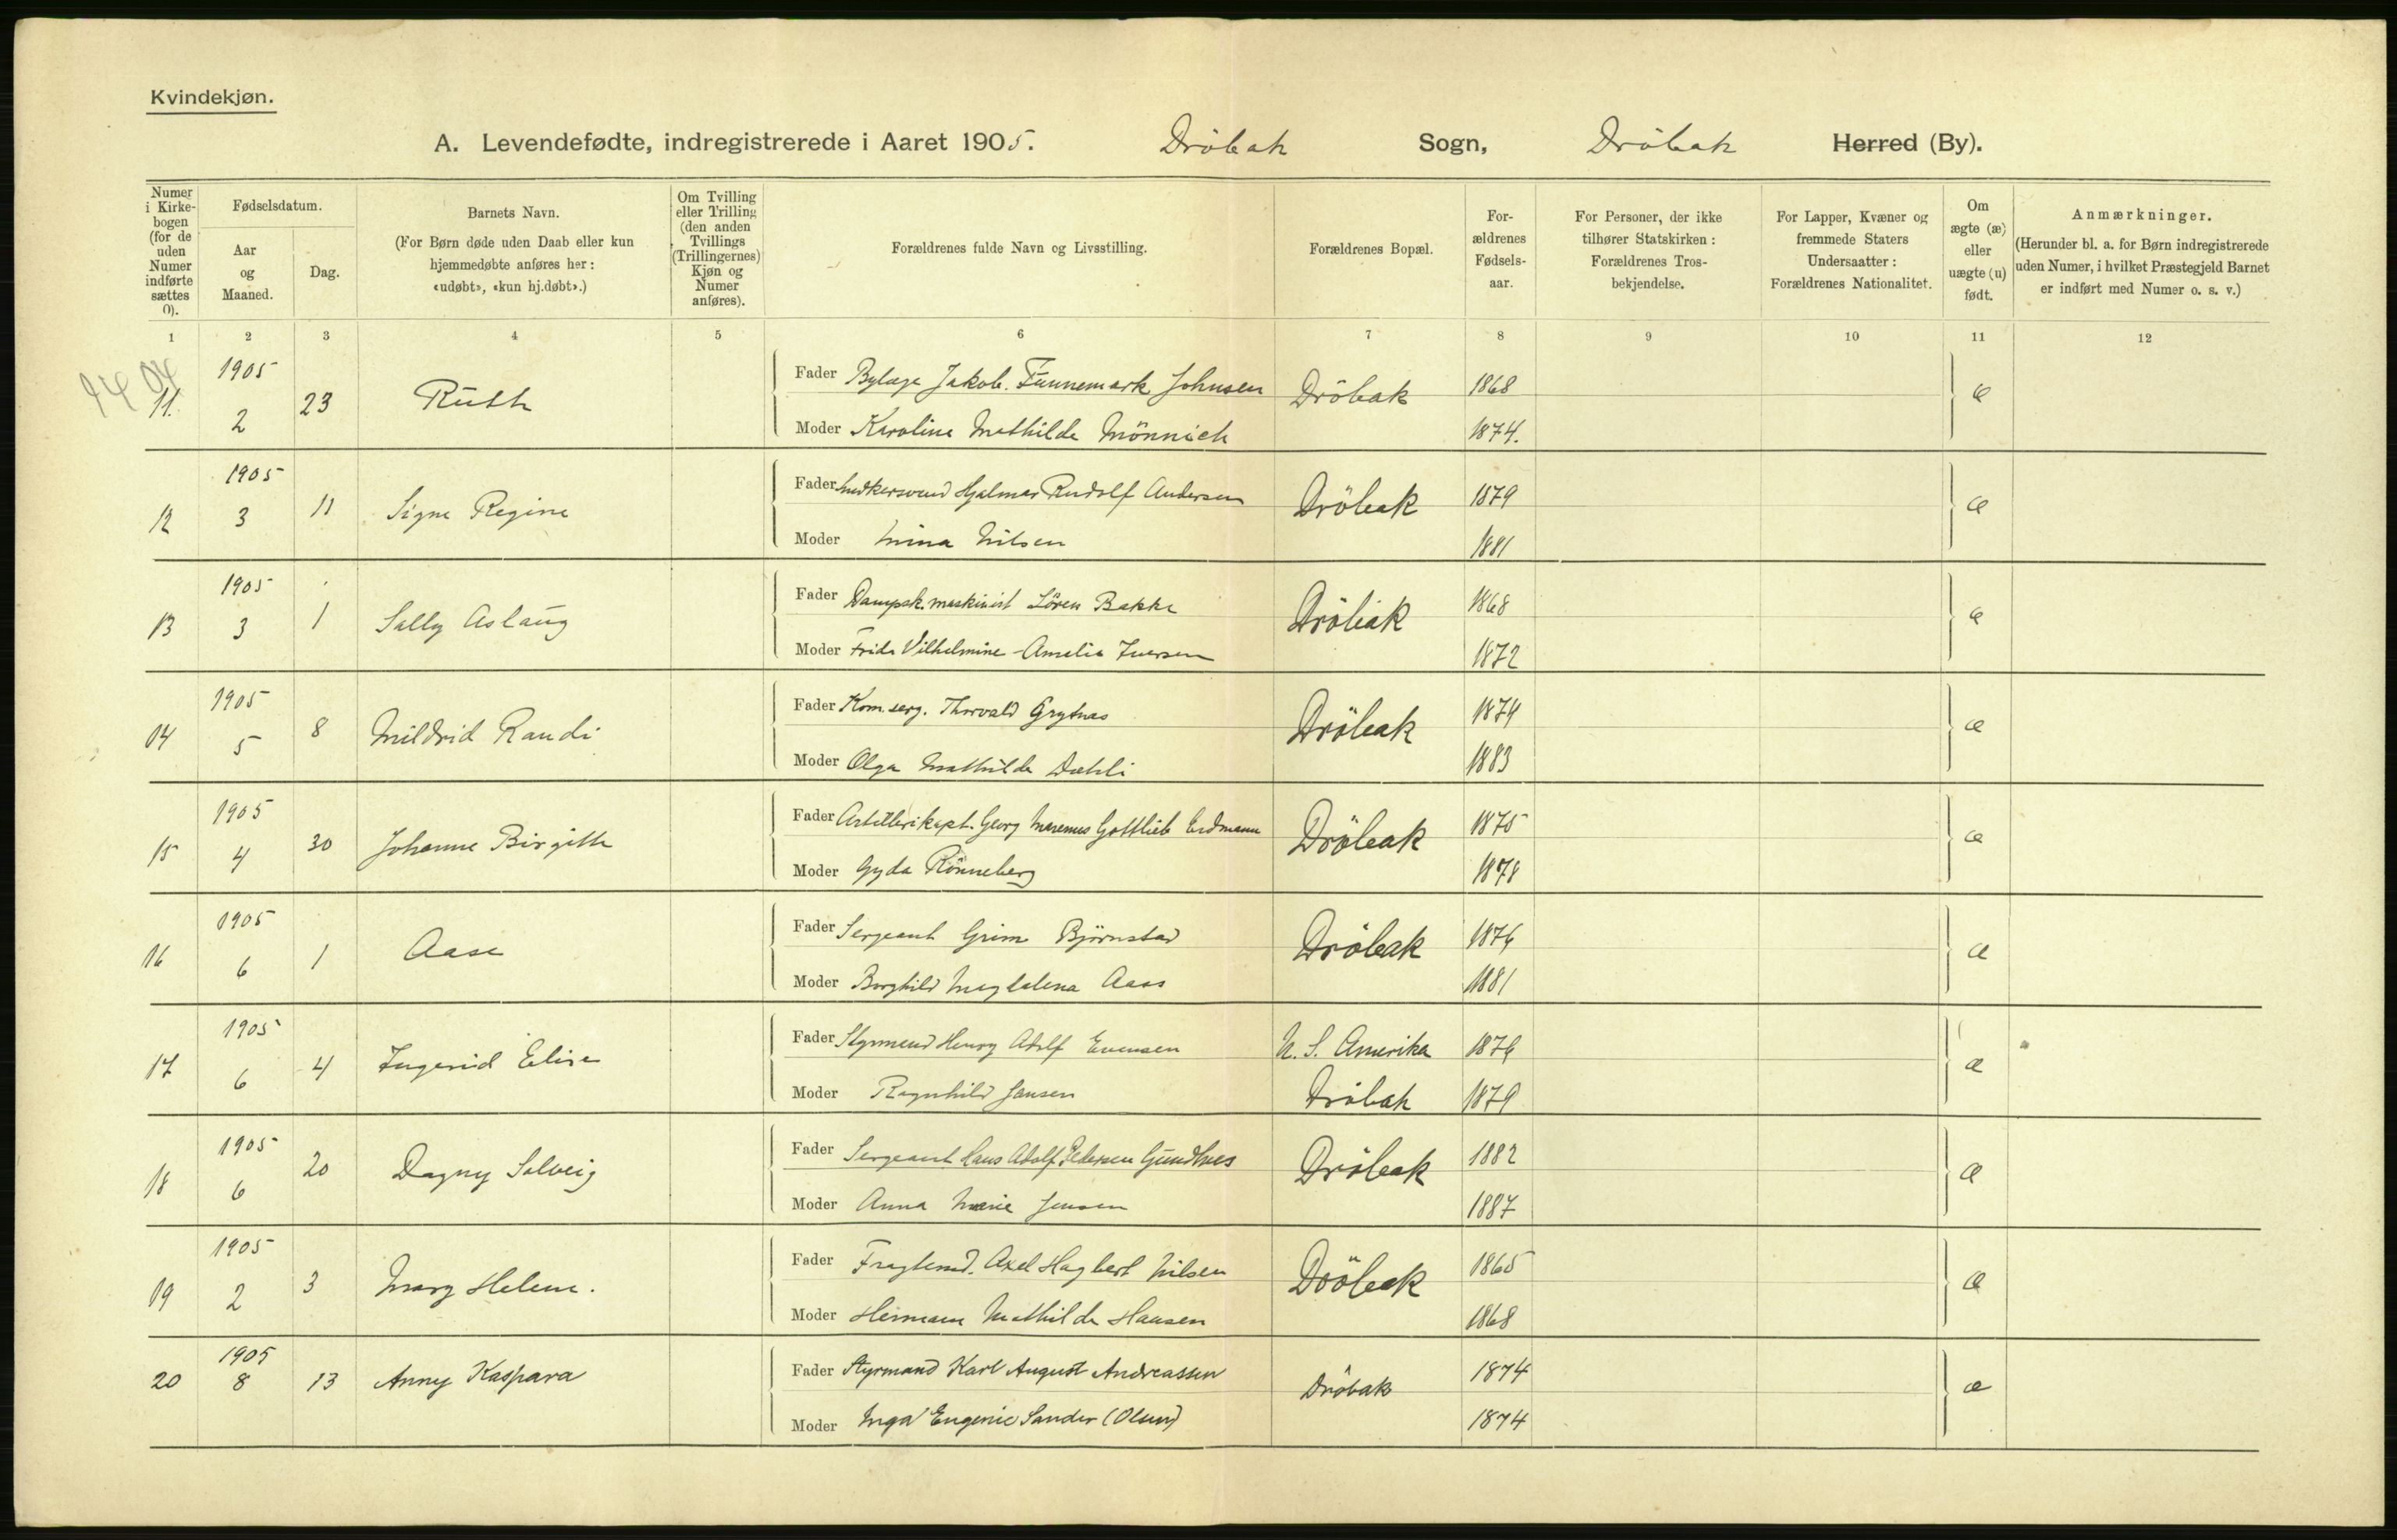 Kvindekjøn.
A. Levendefødte, indregistrerede i Aaret 1905. Dröbak Sogn, Dröbak Herred (By).
Numer i Kirke-bogen (for de uden Numer indførte sættes 0).
Fødselsdatum.
Aar og Maaned.
Dag.
Barnets Navn.
(For Børn døde uden Daab eller kun hjemmedøbte anføres her: «udøbt», «kun hj.døbt».)
Om Tvilling eller Trilling (den anden Tvillings (Trillingernes) Kjøn og Numer anføres).
Forældrenes fulde Navn og Livsstilling.
Forældrenes Bopæl.
For-ældrenes Fødsels-aar.
For Personer, der ikke tilhører Statskirken: Forældrenes Tros-bekjendelse.
For Lapper, Kvæner og fremmede Staters Undersaatter: Forældrenes Nationalitet.
Om ægte (æ) eller uægte (u) født.
Anmærkninger.
(Herunder bl. a. for Børn indregistrerede uden Numer, i hvilket Præstegjeld Barnet er indført med Numer o. s. v.)
1 2 3 4 5 6 7 8 9 10 11 12
11. 1905 2 23 Ruth Fader Bylæge Jakob Funnemark Johnsen Dröbak 1868 æ
Moder Karoline Mathilde Mönnich 1874.
12 1905 3 11 Signe Regine Fader Hjalmar Rudolf Andersen Dröbak 1879 æ
Moder Mina Nilsen 1881
13 1905 3 1 Sally Aslaug Fader Dampsk.maskinist Sören Bakke Dröbak 1868 æ
Moder Frida Vilhelmine Amelia Iversen 1872
14 1905 5 8 Mildrid Randi Fader Kom.serg. Thorvald Grytnes Dröbak 1874 æ
Moder Olga Mathilde Dæhli 1883
15 1905 4 30 Johanne Birgitte Fader Artillerikapt. Georg Marenus Gottlieb Erdmann Dröbak 1875 æ
Moder Gyda Rönneberg 1878
16 1905 6 1 Aase Fader Sergeant Grim Björnstad Dröbak 1876 æ
Moder Borghild Magdalena Aaas 1881
17 1905 6 4 Ingerid Elise Fader Styrmand Henry Adolf Evensen N. S. Amerika 1876 æ
Moder Ragnhild Jansen Dröbak 1879
18 1905 6 20 Dagny Solveig Fader Sergeant Hans Adolf Pedersen Dröbak 1882 æ
Moder Anna Marie Jensen 1887
19 1905 2 3 Mary Helene. Fader Axel Hagbert Nilsen Dröbak 1865 æ
Moder Mathilde Hansen 1868
20 1905 8 13 Anny Kaspara Fader Styrmand Karl August Andreassen Dröbak 1874 æ
Moder Inga Eugenie Sander (Olsen) 1874